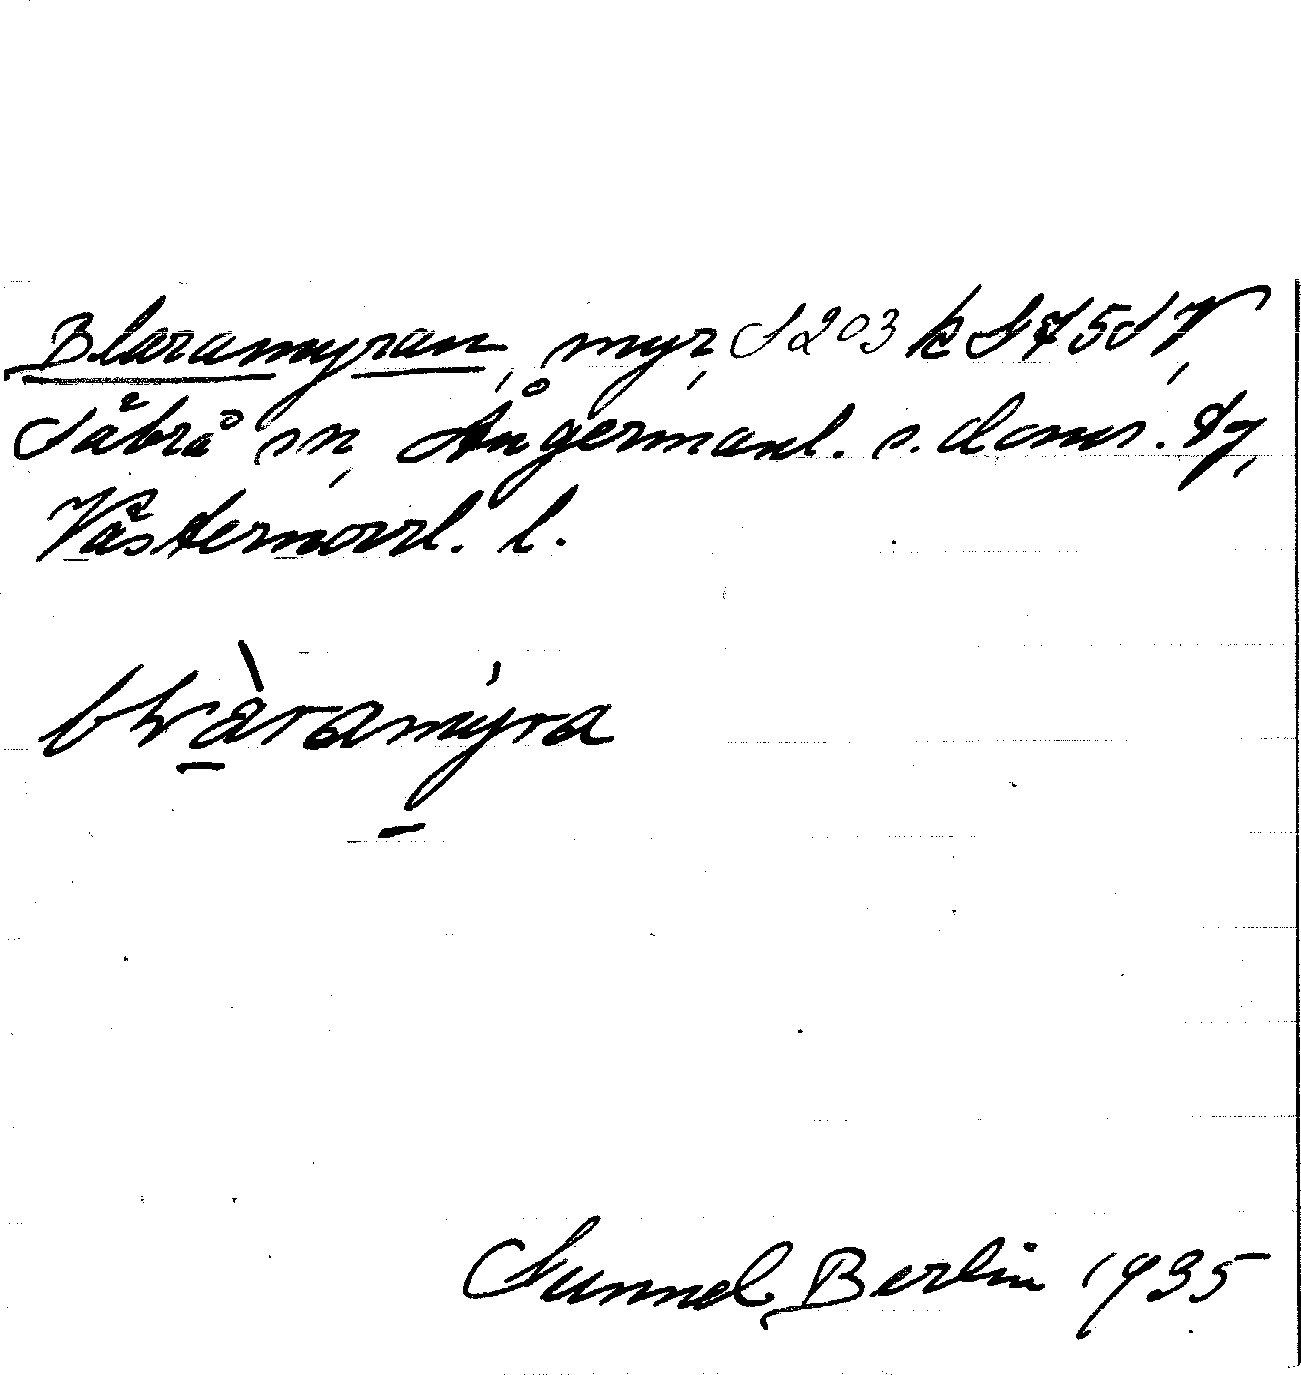 Blaramyran, myr, S203 k S75d7,
Säbrå sn, Ångermanl. s. doms. tg,
Västernorrl. l.
blràramýra
Gunnel Berlin 1935